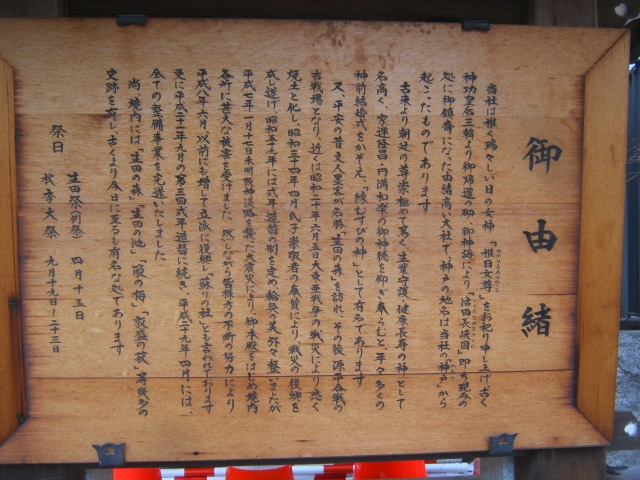 御由緒
当社は稚く瑞々しい日の女神「稚日女尊」をお祀り申し上げ、古く
神功皇后三韓より御帰還の砌、御神誨により、「活田長峡国」即ち現今の
処に御鎮齋になった由緒高い大社で、神戸の地名は当社の「神戸」から
起こったものであります
古来より朝廷の尊崇極めて篤く、生業守護、健康長寿の神として
名高く、家運隆昌・円満和楽の御神徳を仰ぎ奉らむと、年々多くの
神前結婚式をかぞえ、「縁むすびの神」として有名であります
又、平安の昔文人墨客が名勝「生田の森」を訪れ、その後源平合戦の
古戦場となり、近くは昭和二十年六月五日大東亜戦争の戦災により悉く
焼土と化し、昭和三十四年四月氏子崇敬者の奉賛により、戦災の復興を
成し遂げ、昭和五十九年には式年造替の制を定め、輪奐の美弥々整いましたが
平成七年一月十七日未明阪神淡路を襲った大震災により、御本殿をはじめ境内
各所に甚大な被害を受けました、然しながら皆様方の不断の努力により
平成八年六月、以前にも増して立派に復興し「蘇りの社」とも言われております
更に平成二十一年九月の第三回式年造替に続き、平成二十九年四月には、
全ての整備事業を完遂いたしました
尚、境内には「生田の森」「生田の池」「箙の梅」「敦盛の萩」等幾多の
史跡を有し、古くより今日に至るも有名な処であります
祭日 生田祭（例祭） 四月十五日
秋季大祭 九月十九日〜二十三日